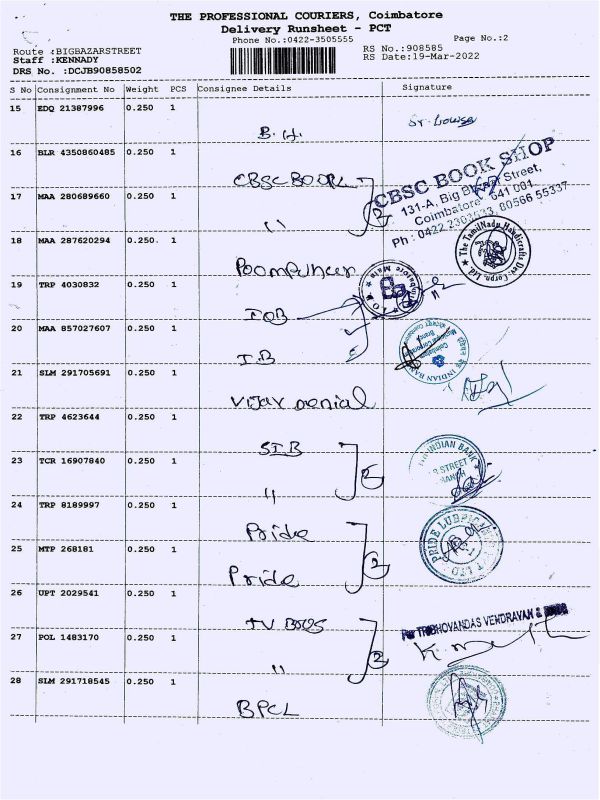 THE PROFESSIONAL COURIERS, Coimbatore
Delivery Runsheet - PCT
Phone No.:0422-3505555
Page No.:2
Route :BIGBAZARSTREET
RS No.:908585
Staff :KENNADY
RS Date:19-Mar-2022
DRS No. :DCJB90858502
S No Consignment No Weight PCS Consignee Details Signature
15 EDQ 21387996 0.250 1
B.H.
16 BLR 4350860485 0.250 1
CBSC BOOK
CBSC BOOK SHOP
131-A, Big Street,
Coimbatore 641 001
Ph : 0422 80566 55337
17 MAA 280689660 0.250 1
" 2
18 MAA 287620294 0.250. 1
Poompuhar
The TamilNadu Handicrafts Dev. Corpn. Ltd.
19 TRP 4030832 0.250 1
IOB
20 MAA 857027607 0.250 1
I.B
INDIAN BANK
21 SLM 291705691 0.250 1
Vijay
22 TRP 4623644 0.250 1
SIB
INDIAN BANK
STREET
23 TCR 16907840 0.250 1
" 2
24 TRP 8189997 0.250 1
Pride
PRIDE
25 MTP 268181 0.250 1
Pride 2
26 UPT 2029541 0.250 1
TV Bros
For TRIBHOVANDAS VENDRAVAN &
27 POL 1483170 0.250 1
" 2
28 SLM 291718545 0.250 1
BPCL